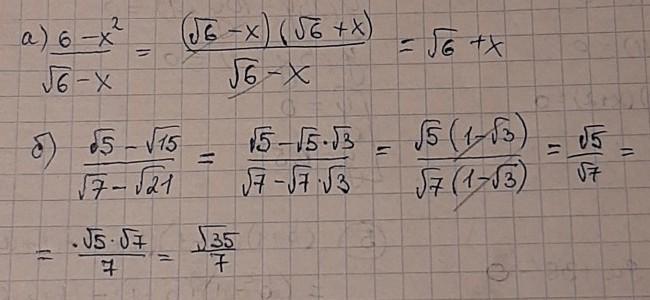 а) 6 - x² / √6 - x = (√6 - x)(√6 + x) / √6 - x = √6 + x
б) √5 - √15 / √7 - √21 = √5 - √5·√3 / √7 - √7·√3 = √5(1-√3) / √7(1-√3) = √5 / √7 =
= √5·√7 / 7 = √35 / 7